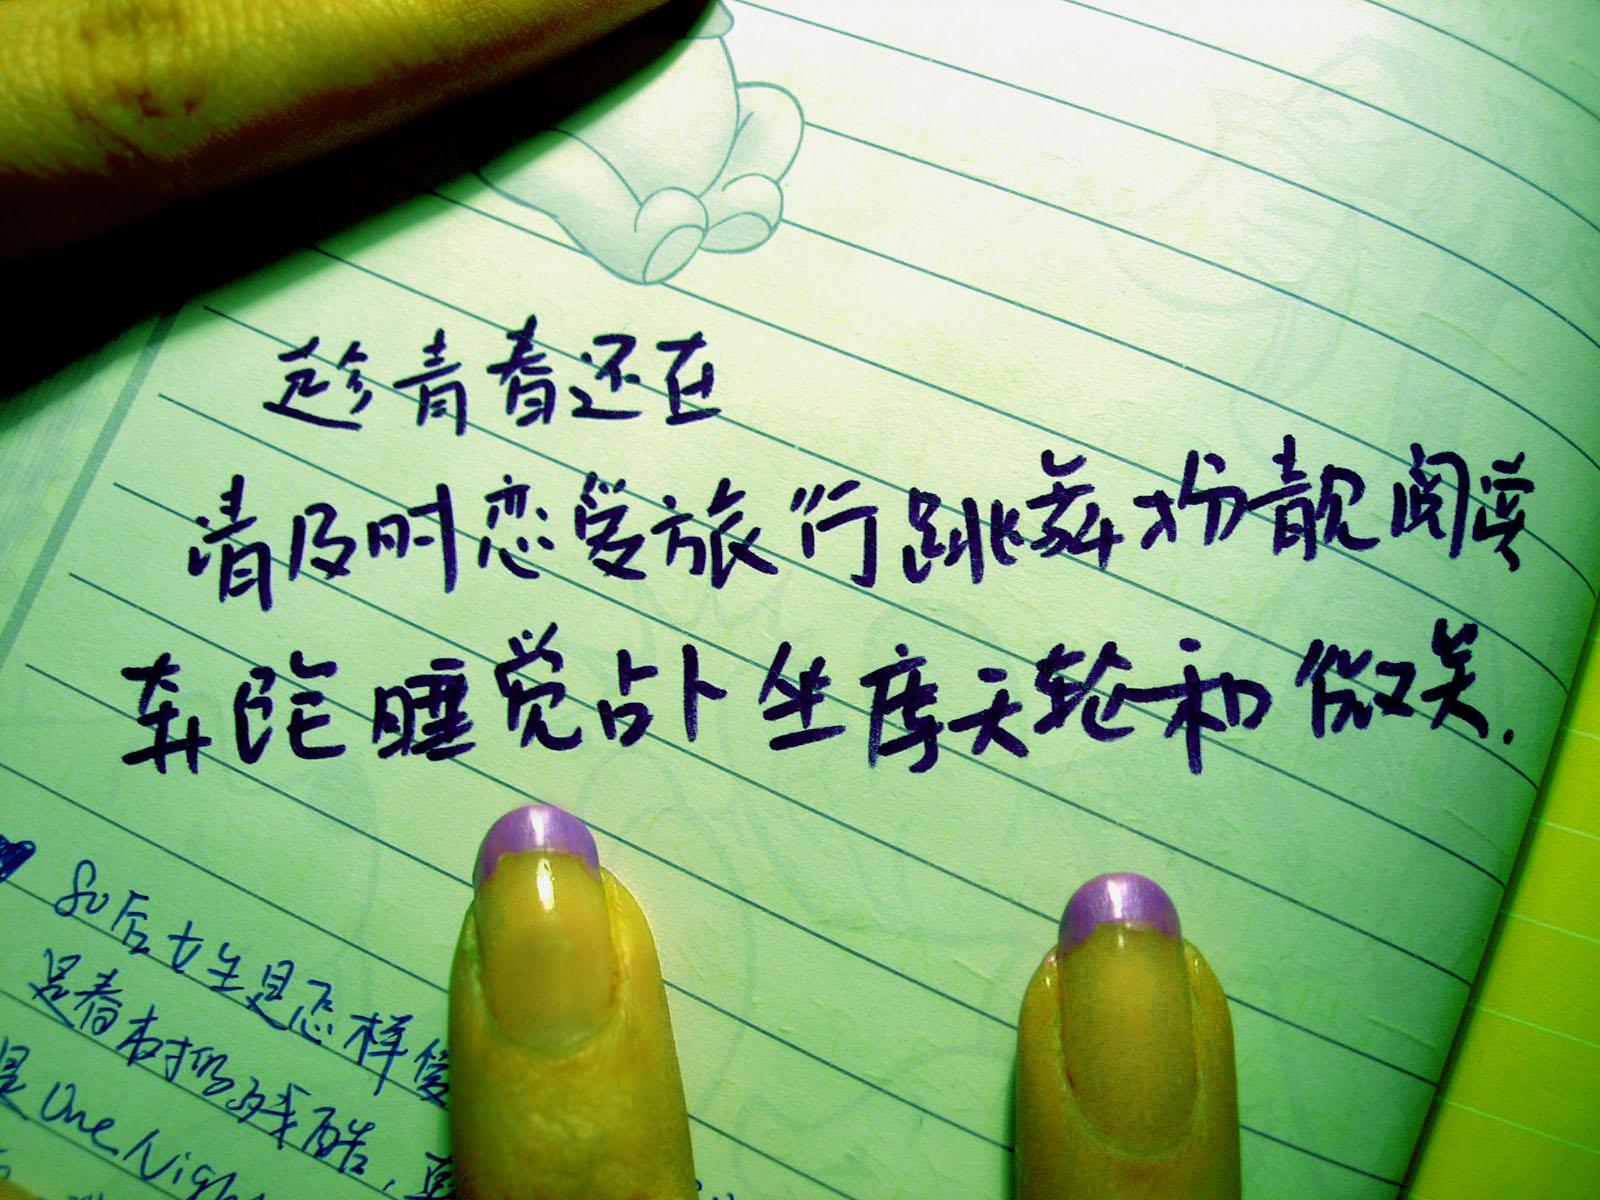 趁青春还在
请及时恋爱旅行跳舞扮靓阅读
奔跑睡觉占卜坐摩天轮和微笑.
80后女生是怎样
是春树的残酷,
是One Nigh